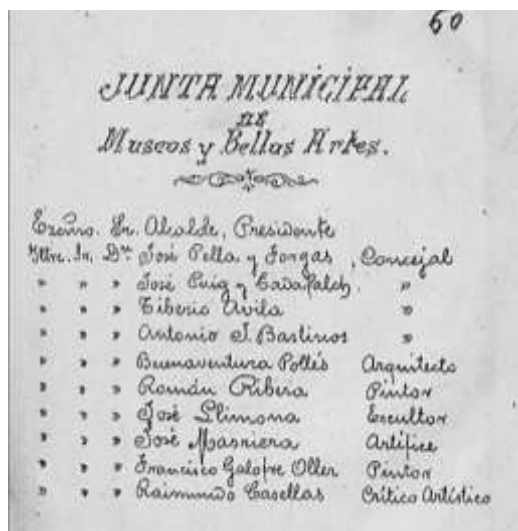 60
JUNTA MUNICIPAL
DE
Museos y Bellas Artes.
Excmo. Sr. Alcalde, Presidente
Iltre. Sr. Dn. José Pella y Forgas, Concejal
" " " José Puig y Cadafalch, "
" " " Tiberio Avila "
" " " Antonio J. Bastinos "
" " " Buenaventura Pollés Arquitecto
" " " Román Ribera Pintor
" " " José Llimona Escultor
" " " José Masriera Artífice
" " " Francisco Galofre Oller Pintor
" " " Raimundo Casellas Crítico Artístico